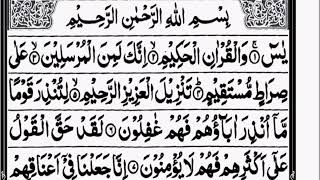 بِسْمِ اللهِ الرَّحْمٰنِ الرَّحِيْمِ
يٰسٓ ۝۱ وَالْقُرْاٰنِ الْحَكِيْمِ ۝۲ اِنَّكَ لَمِنَ الْمُرْسَلِيْنَ ۝۳ عَلٰى
صِرَاطٍ مُّسْتَقِيْمٍ ۝۴ تَنْزِيْلَ الْعَزِيْزِ الرَّحِيْمِ ۝۵ لِتُنْذِرَ قَوْمًا
مَّاۤ اُنْذِرَ اٰبَآؤُهُمْ فَهُمْ غٰفِلُوْنَ ۝۶ لَقَدْ حَقَّ الْقَوْلُ
عَلٰۤى اَكْثَرِهِمْ فَهُمْ لَا يُؤْمِنُوْنَ ۝۷ اِنَّا جَعَلْنَا فِيْۤ اَعْنَاقِهِمْ